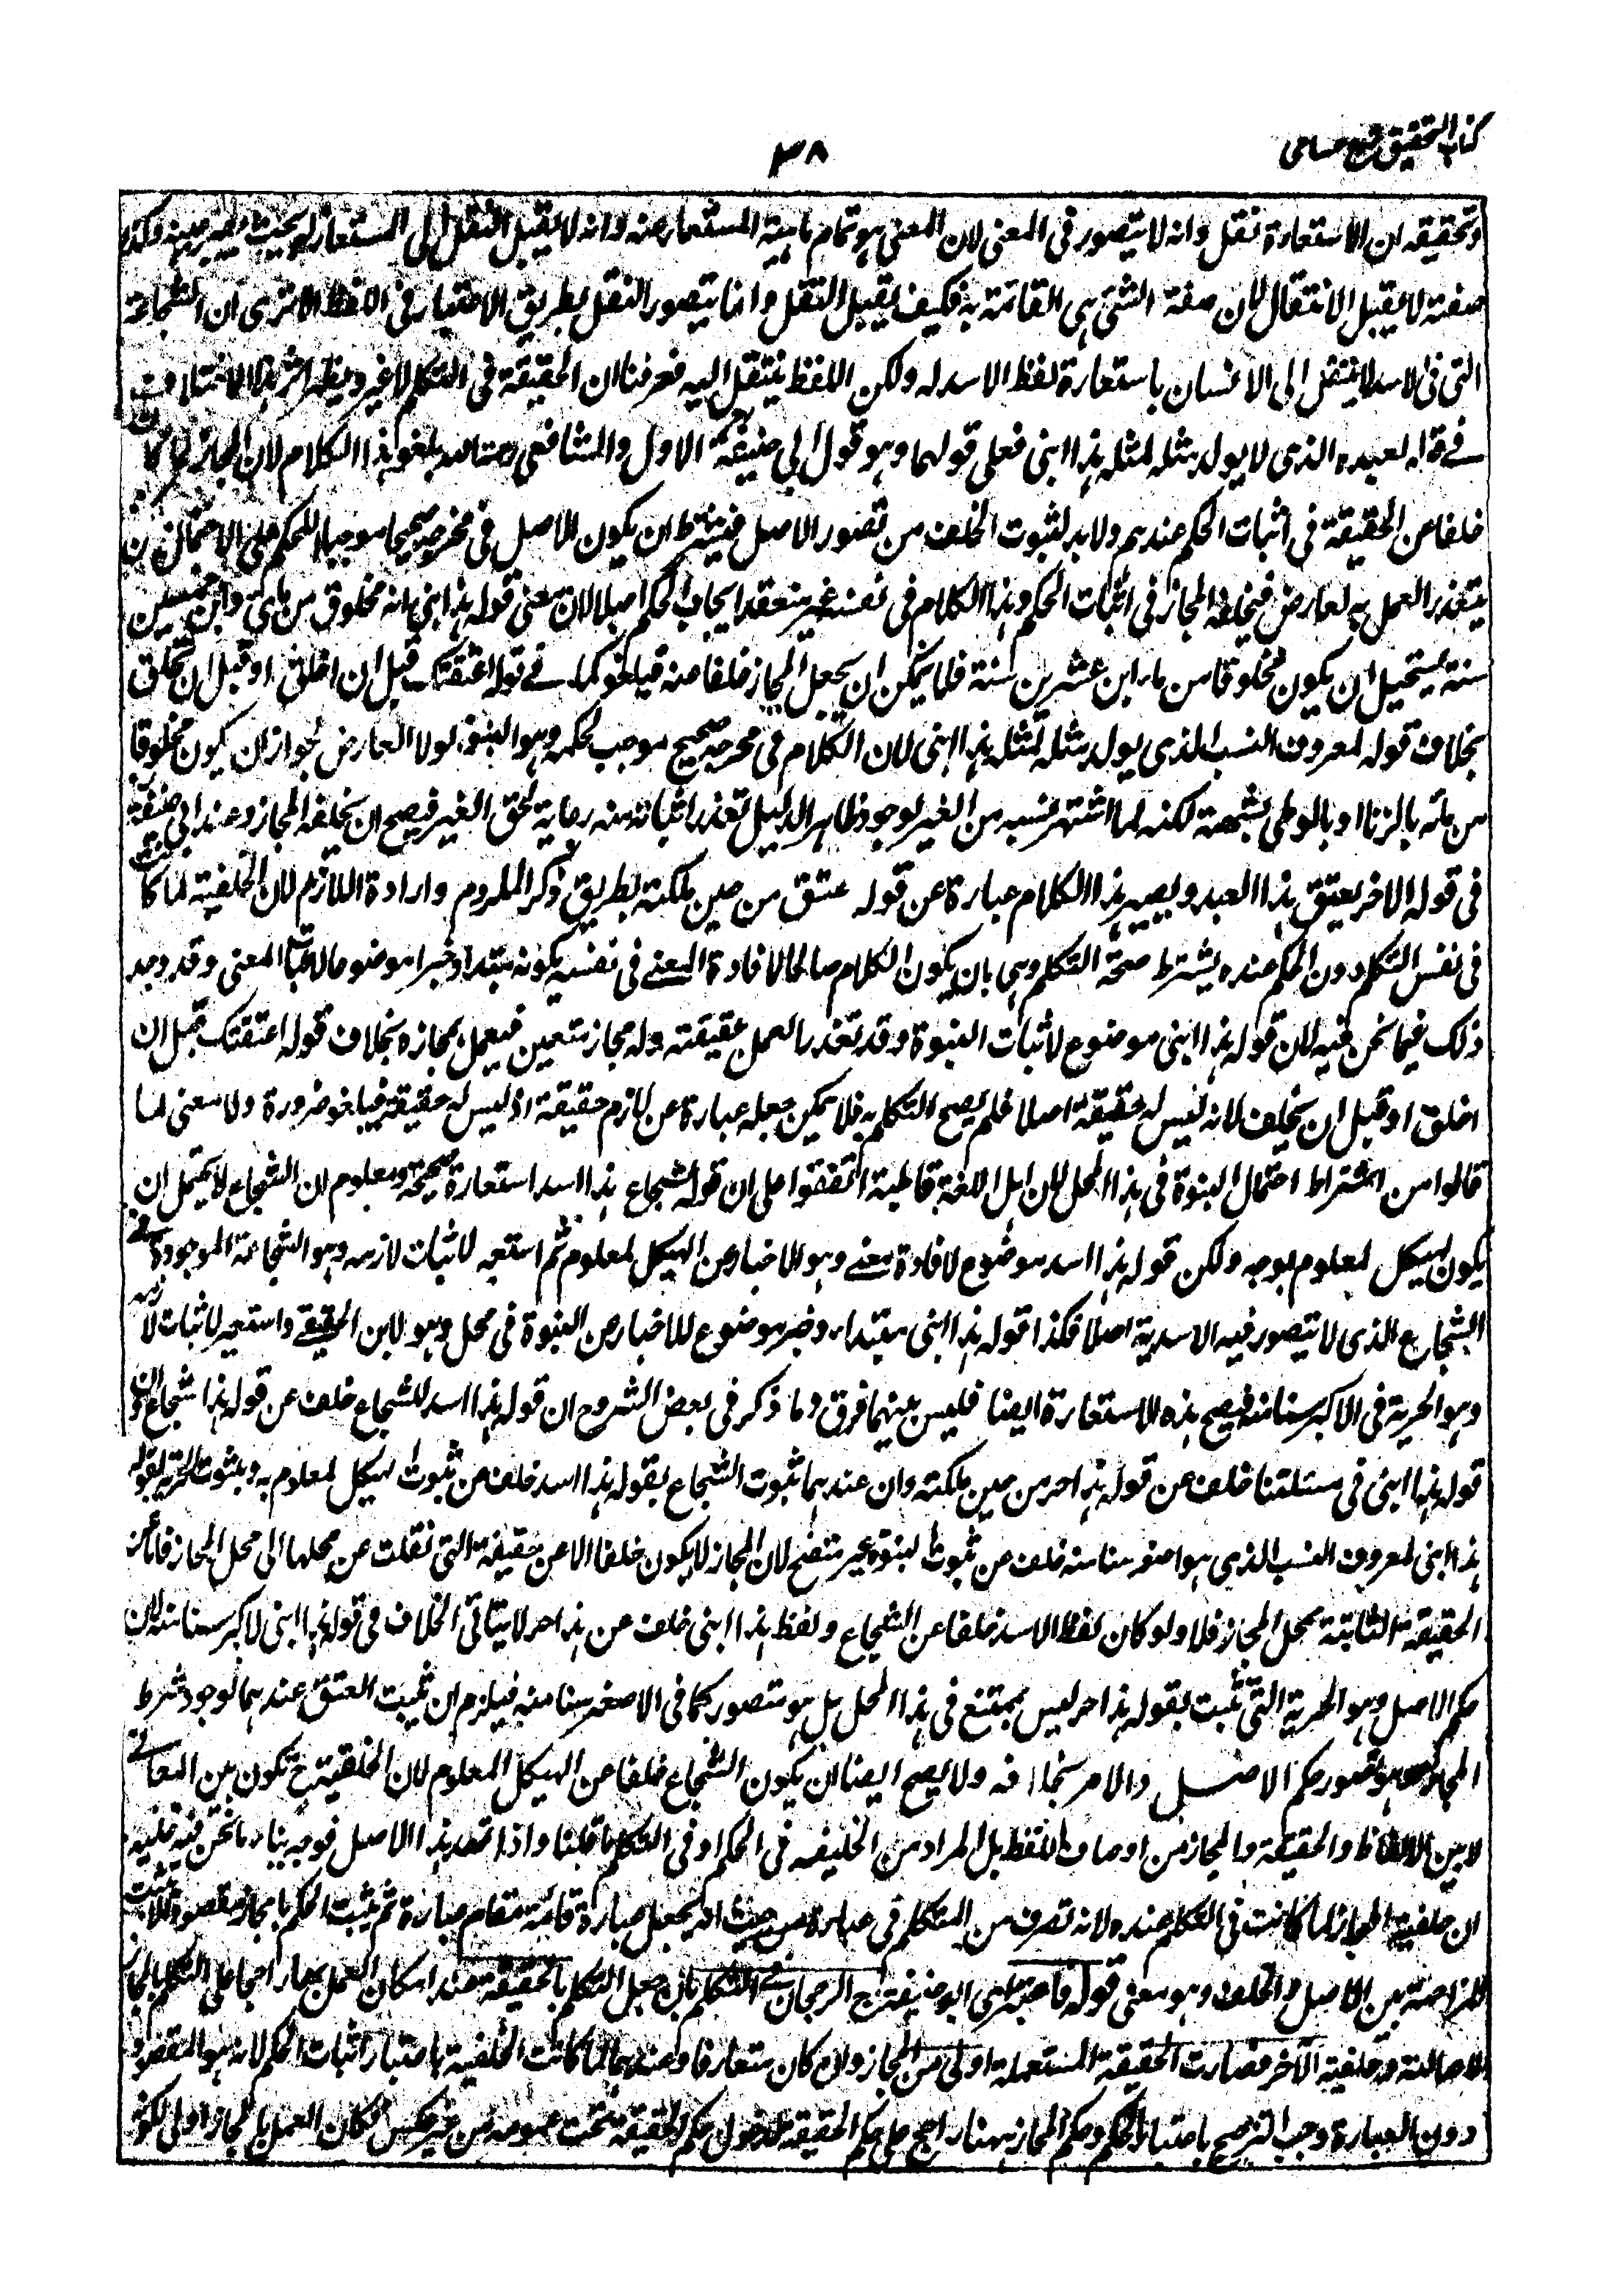 كتاب التحقيق شرح حسامى
٣٨
وتحقيقه ان الاستعارة نقل وانه لا يتصور فى المعنى لان المعنى هو تمام ماهية المستعار منه وانه لا يقبل النقل الى المستعار له بحيث يصير عينه وكذا
صفته لا يقبل الانتقال لان صفة الشئ هى القائمة به فكيف يقبل النقل وانما يتصور النقل بطريق الاختيار فى اللفظ الا ترى ان الشجاعة
التى فى الاسد لا ينتقل الى الانسان باستعارة لفظ الاسد له ولكن اللفظ ينتقل اليه فعرفنا ان الحقيقة فى التكلم لا غير ويظهر اثر هذا الاختلاف
فى قوله لعبده الذى لا يولد مثله لمثله هذا ابنى فعلى قولهما وهو قول ابى حنيفة رح الاول والشافعى يلغو هذا الكلام لان المجاز لما كان
خلفا عن الحقيقة فى اثبات الحكم عندهم ولا بد لثبوت الخلف من تصور الاصل فيشترط ان يكون الاصل فى مخرجه صحيحا موجبا للحكم على الاحتمال
يتعذر العمل به لعارض فيخلفه المجاز فى اثبات الحكم وهذا الكلام فى نفسه غير منعقد لايجاب الحكم اصلا لان معنى قوله هذا ابنى انه مخلوق من مائى وابن خمسين
سنة يستحيل ان يكون مخلوقا من ماء ابن عشرين سنة فلا يمكن ان يجعل المجاز خلفا منه فيلغو كما فى قوله اعتقتك قبل ان اخلق او قبل ان تخلق
بخلاف قوله لمعروف النسب الذى يولد مثله لمثله هذا ابنى لان الكلام فى مخرجه صحيح موجب لحكمه وهو البنوة لولا العارض لجواز ان يكون مخلوقا
من مائه بالزنا او بالوطى بشبهة لكنه لما اشتهر نسبه من الغير لوجود ظاهر الدليل تعذر اثباته منه رعاية لحق الغير فيصح ان يخلفه المجاز وعند ابى حنيفة
فى قوله الاخر يعتق هذا العبد ويصير هذا الكلام عبارة عن قوله عتق من حين ملكته بطريق ذكر الملزوم وارادة اللازم لان الخلفية لما كانت
فى نفس التكلم دون الحكم عنده يشترط صحة التكلم وهى بان يكون الكلام صالحا لافادة المعنى فى نفسه بكونه مبتدأ وخبرا موضوعا لاثبات المعنى وقد وجد
ذلك فيما نحن فيه لان قوله هذا ابنى موضوع لاثبات البنوة وقد تعذر العمل بحقيقته وله مجاز متعين فيعمل بمجازه بخلاف قوله اعتقتك قبل ان
اخلق او قبل ان تخلق لانه ليس له حقيقة اصلا فلم يصح التكلم به فلا يمكن جعله عبارة عن لازم حقيقة اذ ليس له حقيقة فيلغو ضرورة ولا معنى لما
قالوا من اشتراط احتمال البنوة فى هذا المحل لان اهل اللغة قاطبة اتفقوا على ان قوله للشجاع هذا اسد استعارة صحيحة ومعلوم ان الشجاع لا يحتمل ان
يكون الهيكل المعلوم بوجه ولكن قوله هذا اسد موضوع لافادة معنى وهو الاخبار عن الهيكل المعلوم ثم استعير لاثبات لازمه وهو الشجاعة الموجودة فى
الشجاع الذى لا يتصور فيه الاسدية اصلا فكذا قوله هذا ابنى مبتداء وخبر موضوع للاخبار عن البنوة فى محل وهو الابن الحقيقى واستعير لاثبات لازمه
وهو الحرية فى الاكبر سنا منه فيصح هذه الاستعارة ايضا فليس بينهما فرق وما ذكر فى بعض الشروح ان قوله هذا اسد للشجاع خلف عن قوله هذا شجاع وان
قوله هذا ابنى فى مسئلتنا خلف عن قوله هذا حر من حين ملكته وان عندهما ثبوت الشجاع بقوله هذا اسد خلف عن ثبوت الهيكل المعلوم به وثبوت الحرية بقوله
هذا ابنى لمعروف النسب الذى هو اصغر سنا منه خلف عن ثبوت البنوة غير متضح لان المجاز لا يكون خلفا الا عن حقيقة التى نقلت من محلها الى محل المجاز فاما عن
الحقيقة الثابتة بمحل المجاز فلا ولو كان لفظ الاسد خلفا عن الشجاع ولفظ هذا ابنى خلف عن هذا حر لا يتاتى الخلاف فى قوله هذا ابنى لاكبر سنا منه لان
حكم الاصل وهو الحرية التى تثبت بقوله هذا حر ليس بممتنع فى هذا المحل بل هو متصور كما فى الاصغر سنا منه فيلزم ان يثبت العتق عندهما لوجود شرط
المجاز وهو تصور حكم الاصل والامر بخلافه ولا يصح ايضا ان يكون الشجاع خلفا عن الهيكل المعلوم لان الخلفية ح تكون بين المعانى
لا بين الالفاظ والحقيقة والمجاز من اوصاف اللفظ بل المراد من الخليفه فى الحكم او فى التكلم ما قلنا واذا تمهد هذا الاصل فوجه بناء ما نحن فيه عليه
ان خلفية المجاز لما كانت فى التكلم عنده ولانه تصرف من المتكلم فى عبارته من حيث انه يجعل عبارة قائمة مقام عبارة ثم يثبت الحكم بالمجاز مقصودا لا يثبت
المزاحمة بين الاصل والخلف وهو معنى قوله فاعتبر ابو حنيفة رح الرجحان فى التكلم بان جعل التكلم بالحقيقة عند امكان العمل بها راجحا على التكلم بالمجاز
لاصالته وخلفية الآخر فصارت الحقيقة المستعملة اولى من المجاز وان كان متعارفا وعندهما لما كانت الخلفية باعتبار اثبات الحكم لانه هو المقصود
دون العبارة وجب الترجيح باعتبار الحكم وحكم المجاز ههنا راجح على حكم الحقيقة لدخول حكم الحقيقة تحت عمومه من غير عكس فكان العمل بالمجاز اولى لكونه